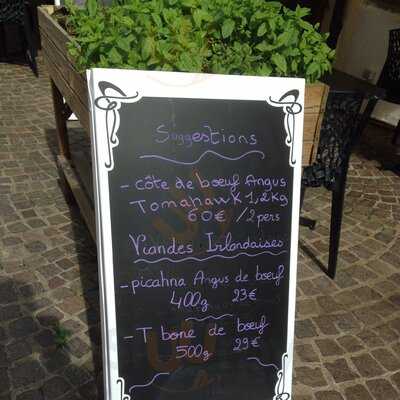 Suggestions
- côte de bœuf Angus
Tomahawk 1,2kg
60€ / 2 pers
Viandes Irlandaises
- picahna Angus de bœuf
400g 23€
- T bone de bœuf
500g 29€